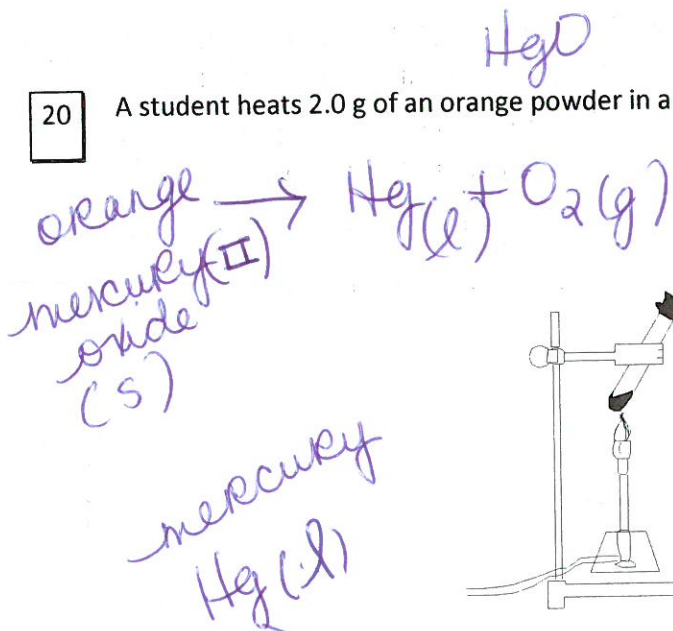 HgO
20 A student heats 2.0 g of an orange powder in a
orange → Hg(l) + O₂(g)
mercury(II)
oxide
(s)
mercury
Hg(l)